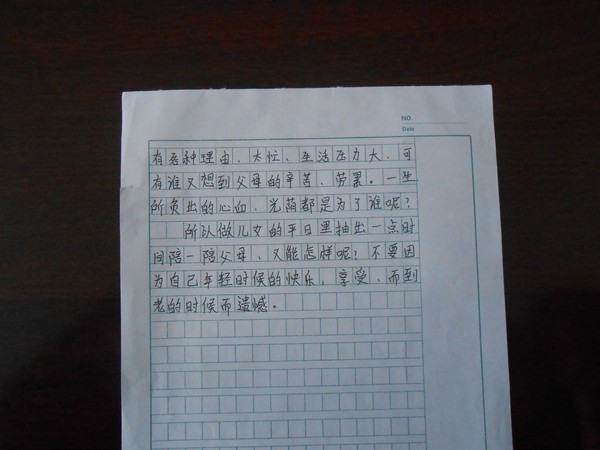 NO.
Date
有各种理由、太忙、生活压力大、可
有谁又想到父母的辛苦、劳累。一生
所负出的心血、光荫都是为了谁呢?
所认做儿女的平日里抽出一点时
间陪一陪父母、又能怎样呢?不要因
为自己年轻时候的快乐,享受、而到
老的时候而遗憾。